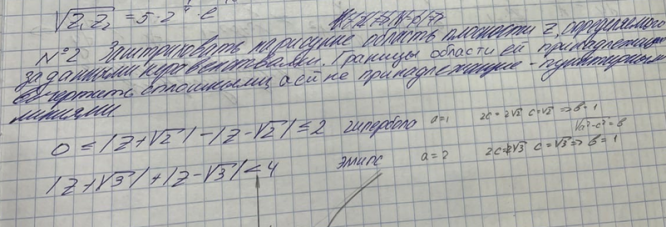 √Z₁Z₂ = 5·2 · e
№2 Заштриховать на рисунке область плоскости Z, определяемого
заданными неравенствами. Границы области ей принадлежащие
начертить сплошными, а ей не принадлежащие - пунктирными
линиями.
0 ≤ |Z+√2| - |Z-√2| ≤ 2 гипербола a=1 2c=2√2 c=√2 => b=1
√a²-c² = b
|Z+√3| + |Z-√3| < 4 эллипс a=2 2c=2√3 c=√3 => b=1